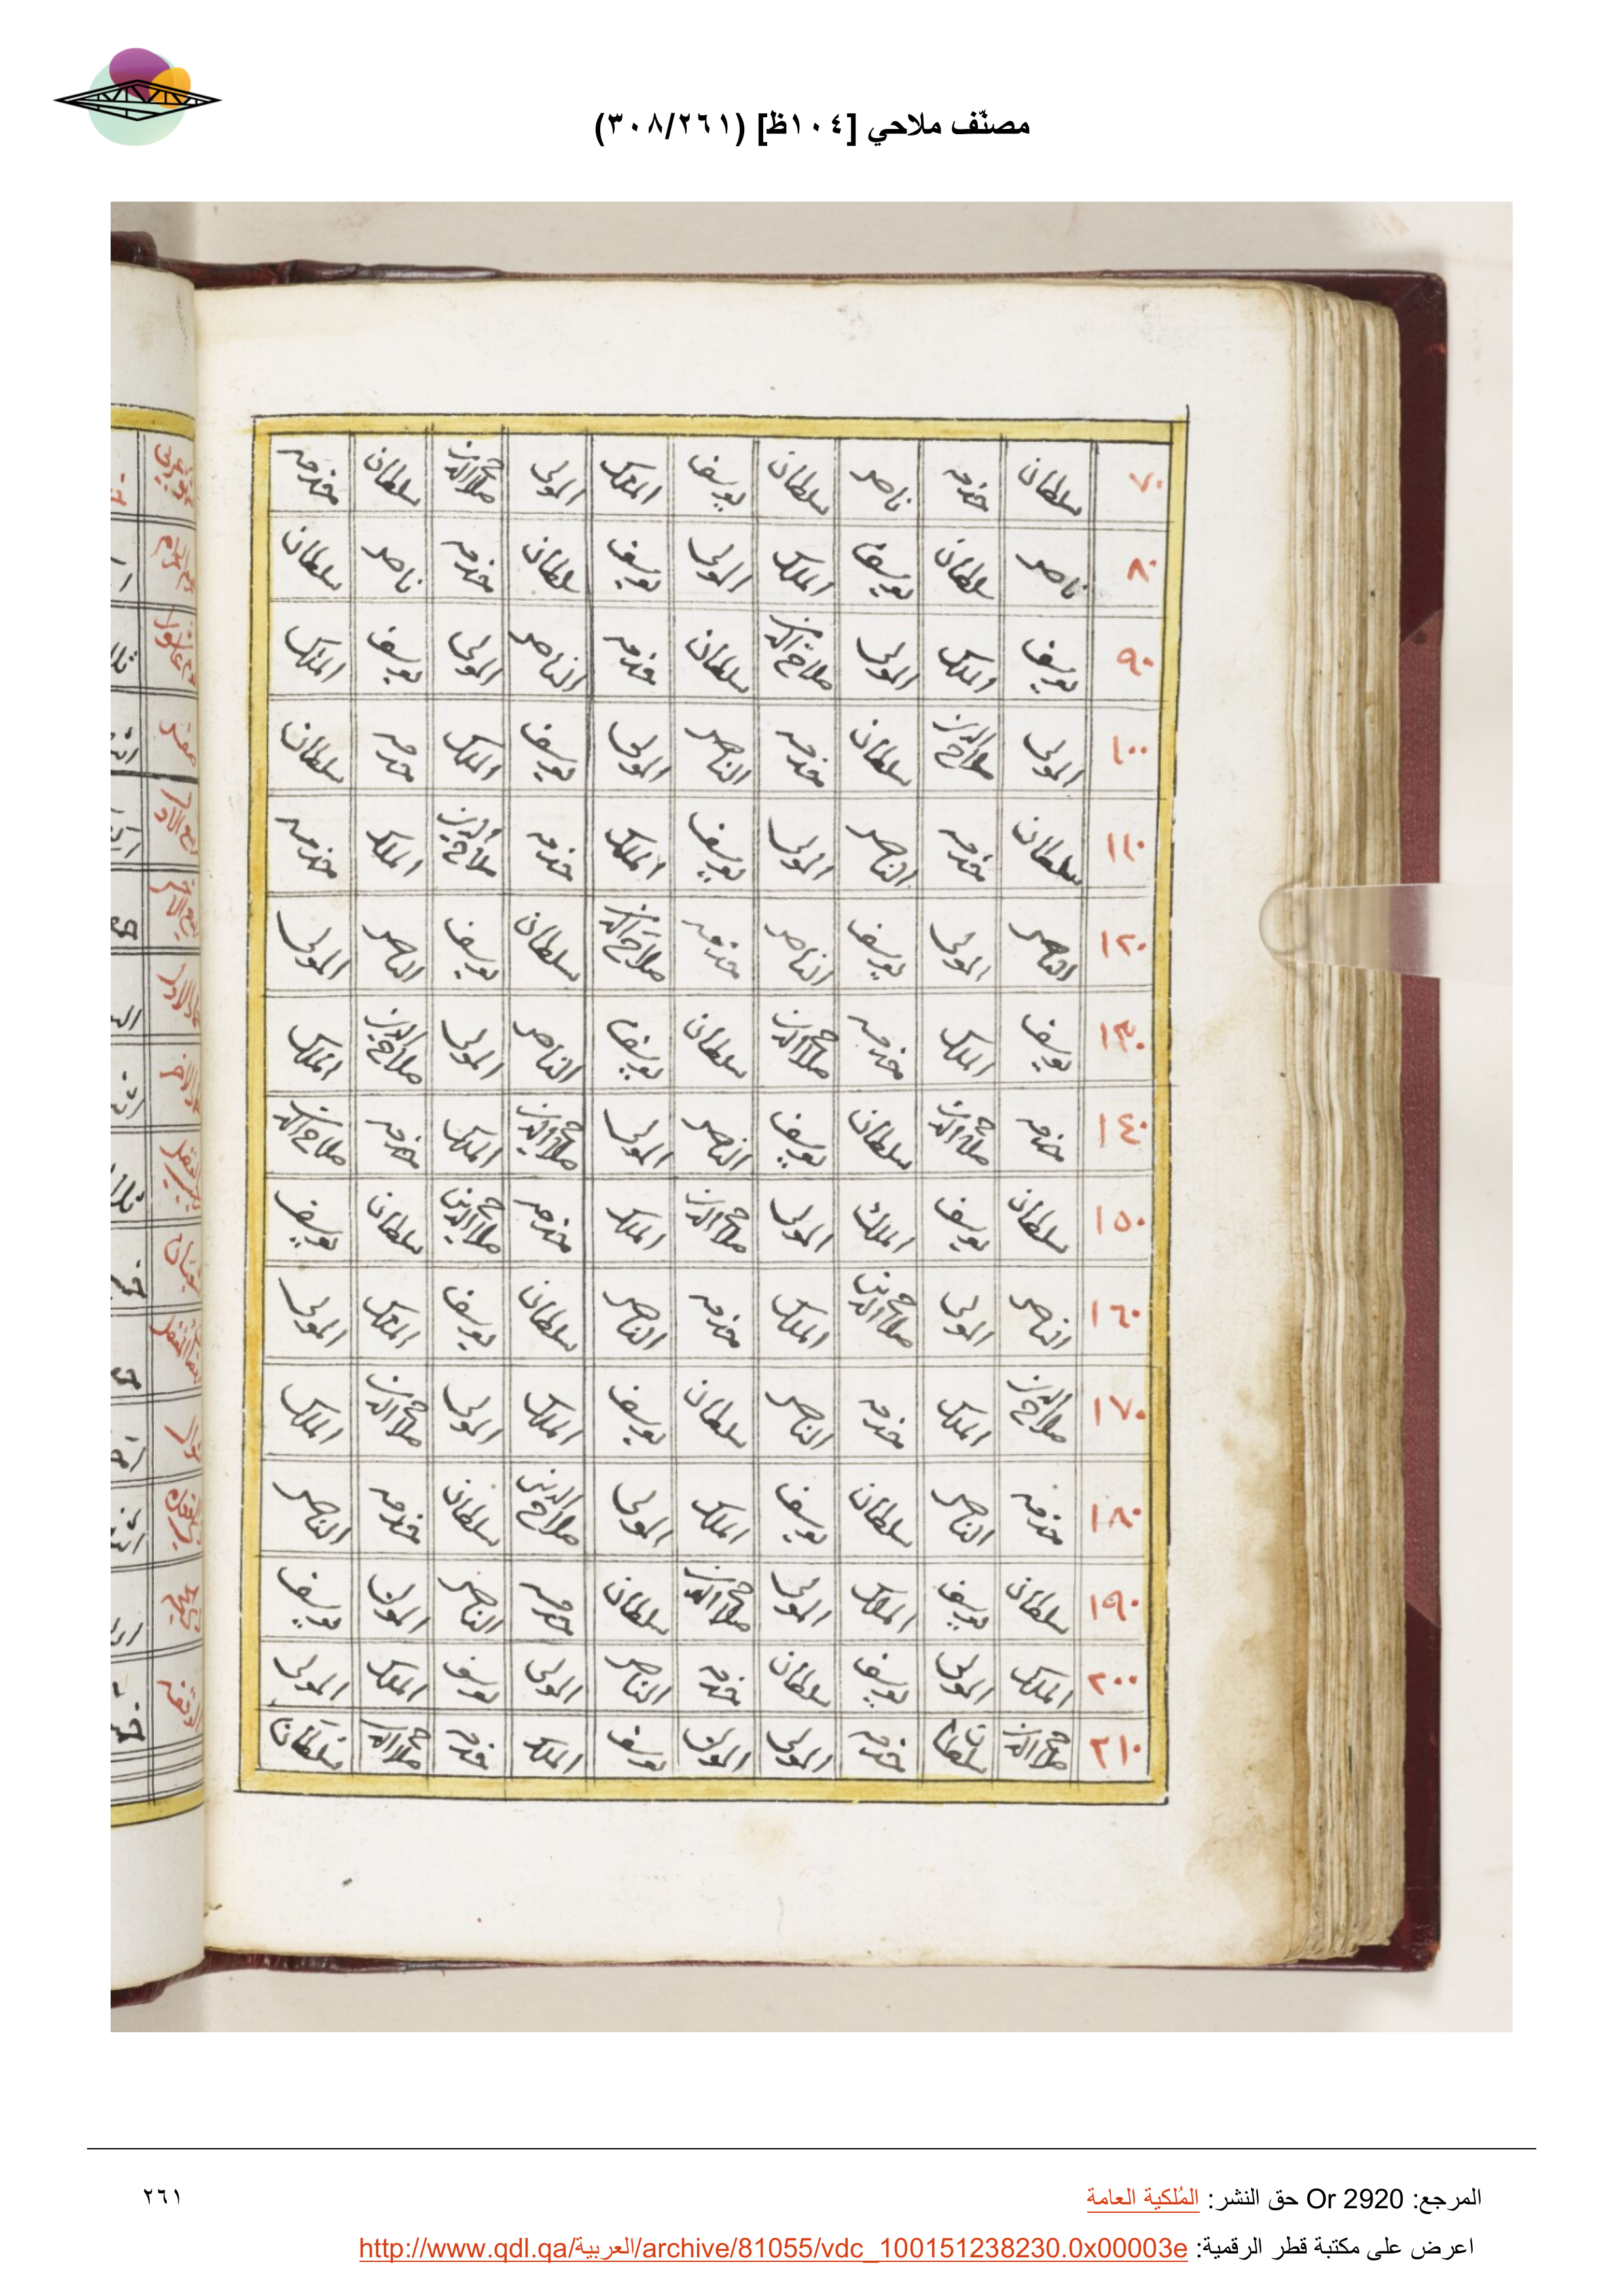 مصنّف ملاحي [١٠٤ظ] (٣٠٨/٢٦١)
٧٠ سلطان خدمه ناصر سلطان يوسف الملك المولى صلاح الدين سلطان خدمه
٨٠ ناصر سلطان يوسف الملك المولى يوسف سلطان خدمه ناصر سلطان
٩٠ يوسف الملك المولى صلاح الدين سلطان خدمه الناصر المولى يوسف الملك
١٠٠ المولى صلاح الدين سلطان خدمه الناصر المولى يوسف الملك خدمه سلطان
١١٠ سلطان خدمه الناصر المولى يوسف الملك خدمه صلاح الدين الملك خدمه
١٢٠ الناصر المولى يوسف الناصر خدمه صلاح الدين سلطان يوسف الناصر المولى
١٣٠ يوسف الملك خدمه صلاح الدين سلطان يوسف الناصر المولى صلاح الدين الملك
١٤٠ خدمه صلاح الدين سلطان يوسف الناصر المولى صلاح الدين الملك خدمه صلاح الدين
١٥٠ سلطان يوسف الملك المولى صلاح الدين الملك خدمه صلاح الدين سلطان يوسف
١٦٠ الناصر المولى صلاح الدين الملك خدمه الناصر سلطان يوسف الملك المولى
١٧٠ صلاح الدين الملك خدمه الناصر سلطان يوسف الملك المولى صلاح الدين الملك
١٨٠ خدمه الناصر سلطان يوسف الملك المولى صلاح الدين سلطان خدمه الناصر
١٩٠ سلطان يوسف الملك المولى صلاح الدين سلطان خدمه الناصر المولى يوسف
٢٠٠ الملك المولى يوسف سلطان خدمه الناصر المولى يوسف الملك المولى
٢١٠ صلاح الدين سلطان خدمه المولى المولى يوسف الملك خدمه صلاح الدين سلطان
المرجع: Or 2920 حق النشر: المُلكية العامة
٢٦١
اعرض على مكتبة قطر الرقمية: http://www.qdl.qa/العربية/archive/81055/vdc_100151238230.0x00003e